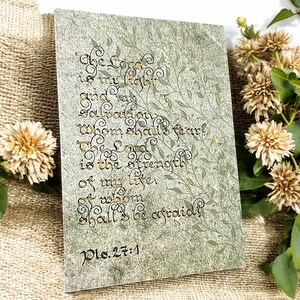 The Lord
is my light
and my
salvation,
Whom shall I fear?
The Lord
is the strength
of my life,
of whom
shall I be afraid?
Ps. 27:1